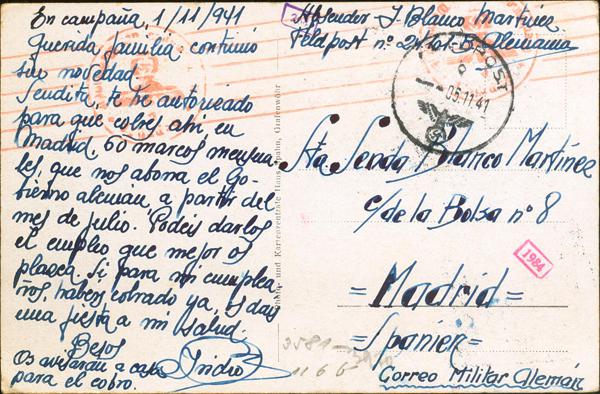 En campaña, 1/11/941
Querida familia continuo
sin novedad.
Sendita, te he autorizado
para que cobres ahi, en
Madrid, 60 marcos mensua-
les, que nos abona el Go-
bierno alemán, a partir del
mes de julio. Podeis darlos
el empleo que mejor os
plazca. Si para mi cumplea
ños, habeis cobrado ya, os dais
una fiesta a mi salud.
Besos
Isidro
Os avisarán a casa
para el cobro.
Absender J. Blanco Martinez
Feldpost nº Alemania
FELDPOST
05.11.41
Sta Senda Blanco Martinez
c/ de la Bolsa nº 8
=Madrid=
=Spanien=
Correo Militar Alemán
1984
und Kartenzentrale Hans Spahn, Grafenwöhr
3581
1166